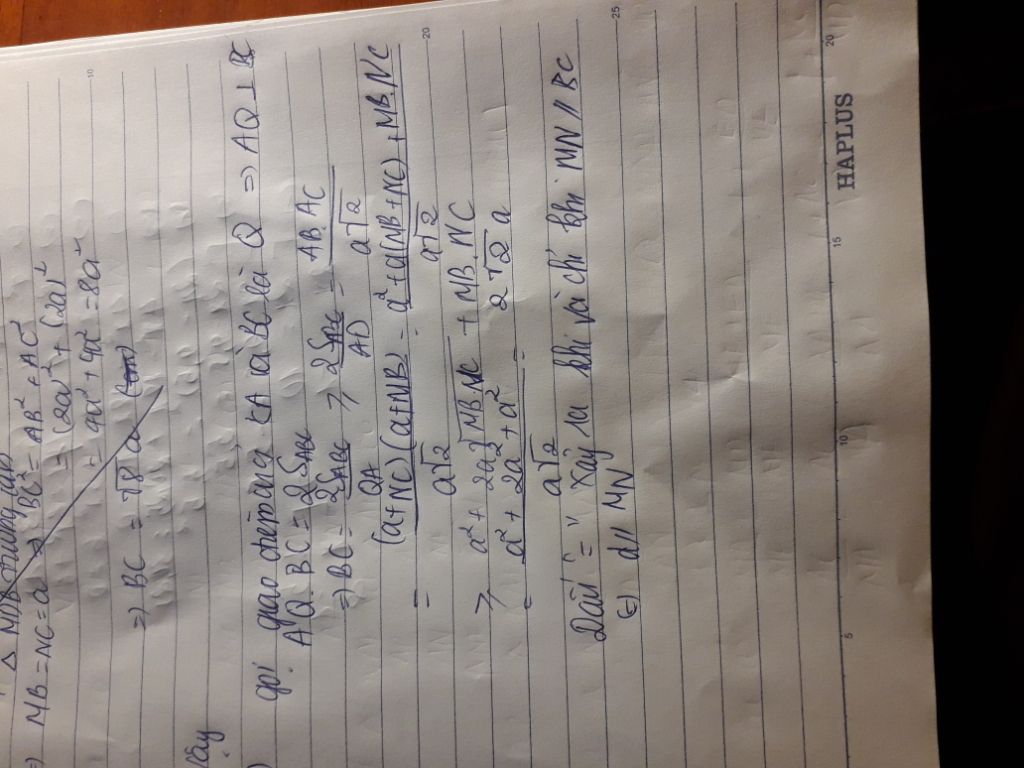 △ MDB
=) MB = NC = a => BC² = AB² + AC²
= (2a)² + (2a)²
= 4a² + 4a² = 8a²
=) BC = √8 a (cm)
lấy
gọi giao đường CA và BC là Q => AQ ⊥ BC
AQ. BC = 2 S ABC
=) BC = 2S ABC / QA > 2 S ABC / AD = AB. AC / a√2
= (a+NC)(a+MB) / a√2 = a² + a(MB+NC) + MB NC / a√2
> a² + 2a √MB.NC + MB. NC / a√2
= a² + 2a² + a² / a√2 = 2√2 a
Dấu "=" xảy ra khi và chỉ khi MN // BC
(=) d // MN
5 10 15 20
10 20 25
HAPLUS